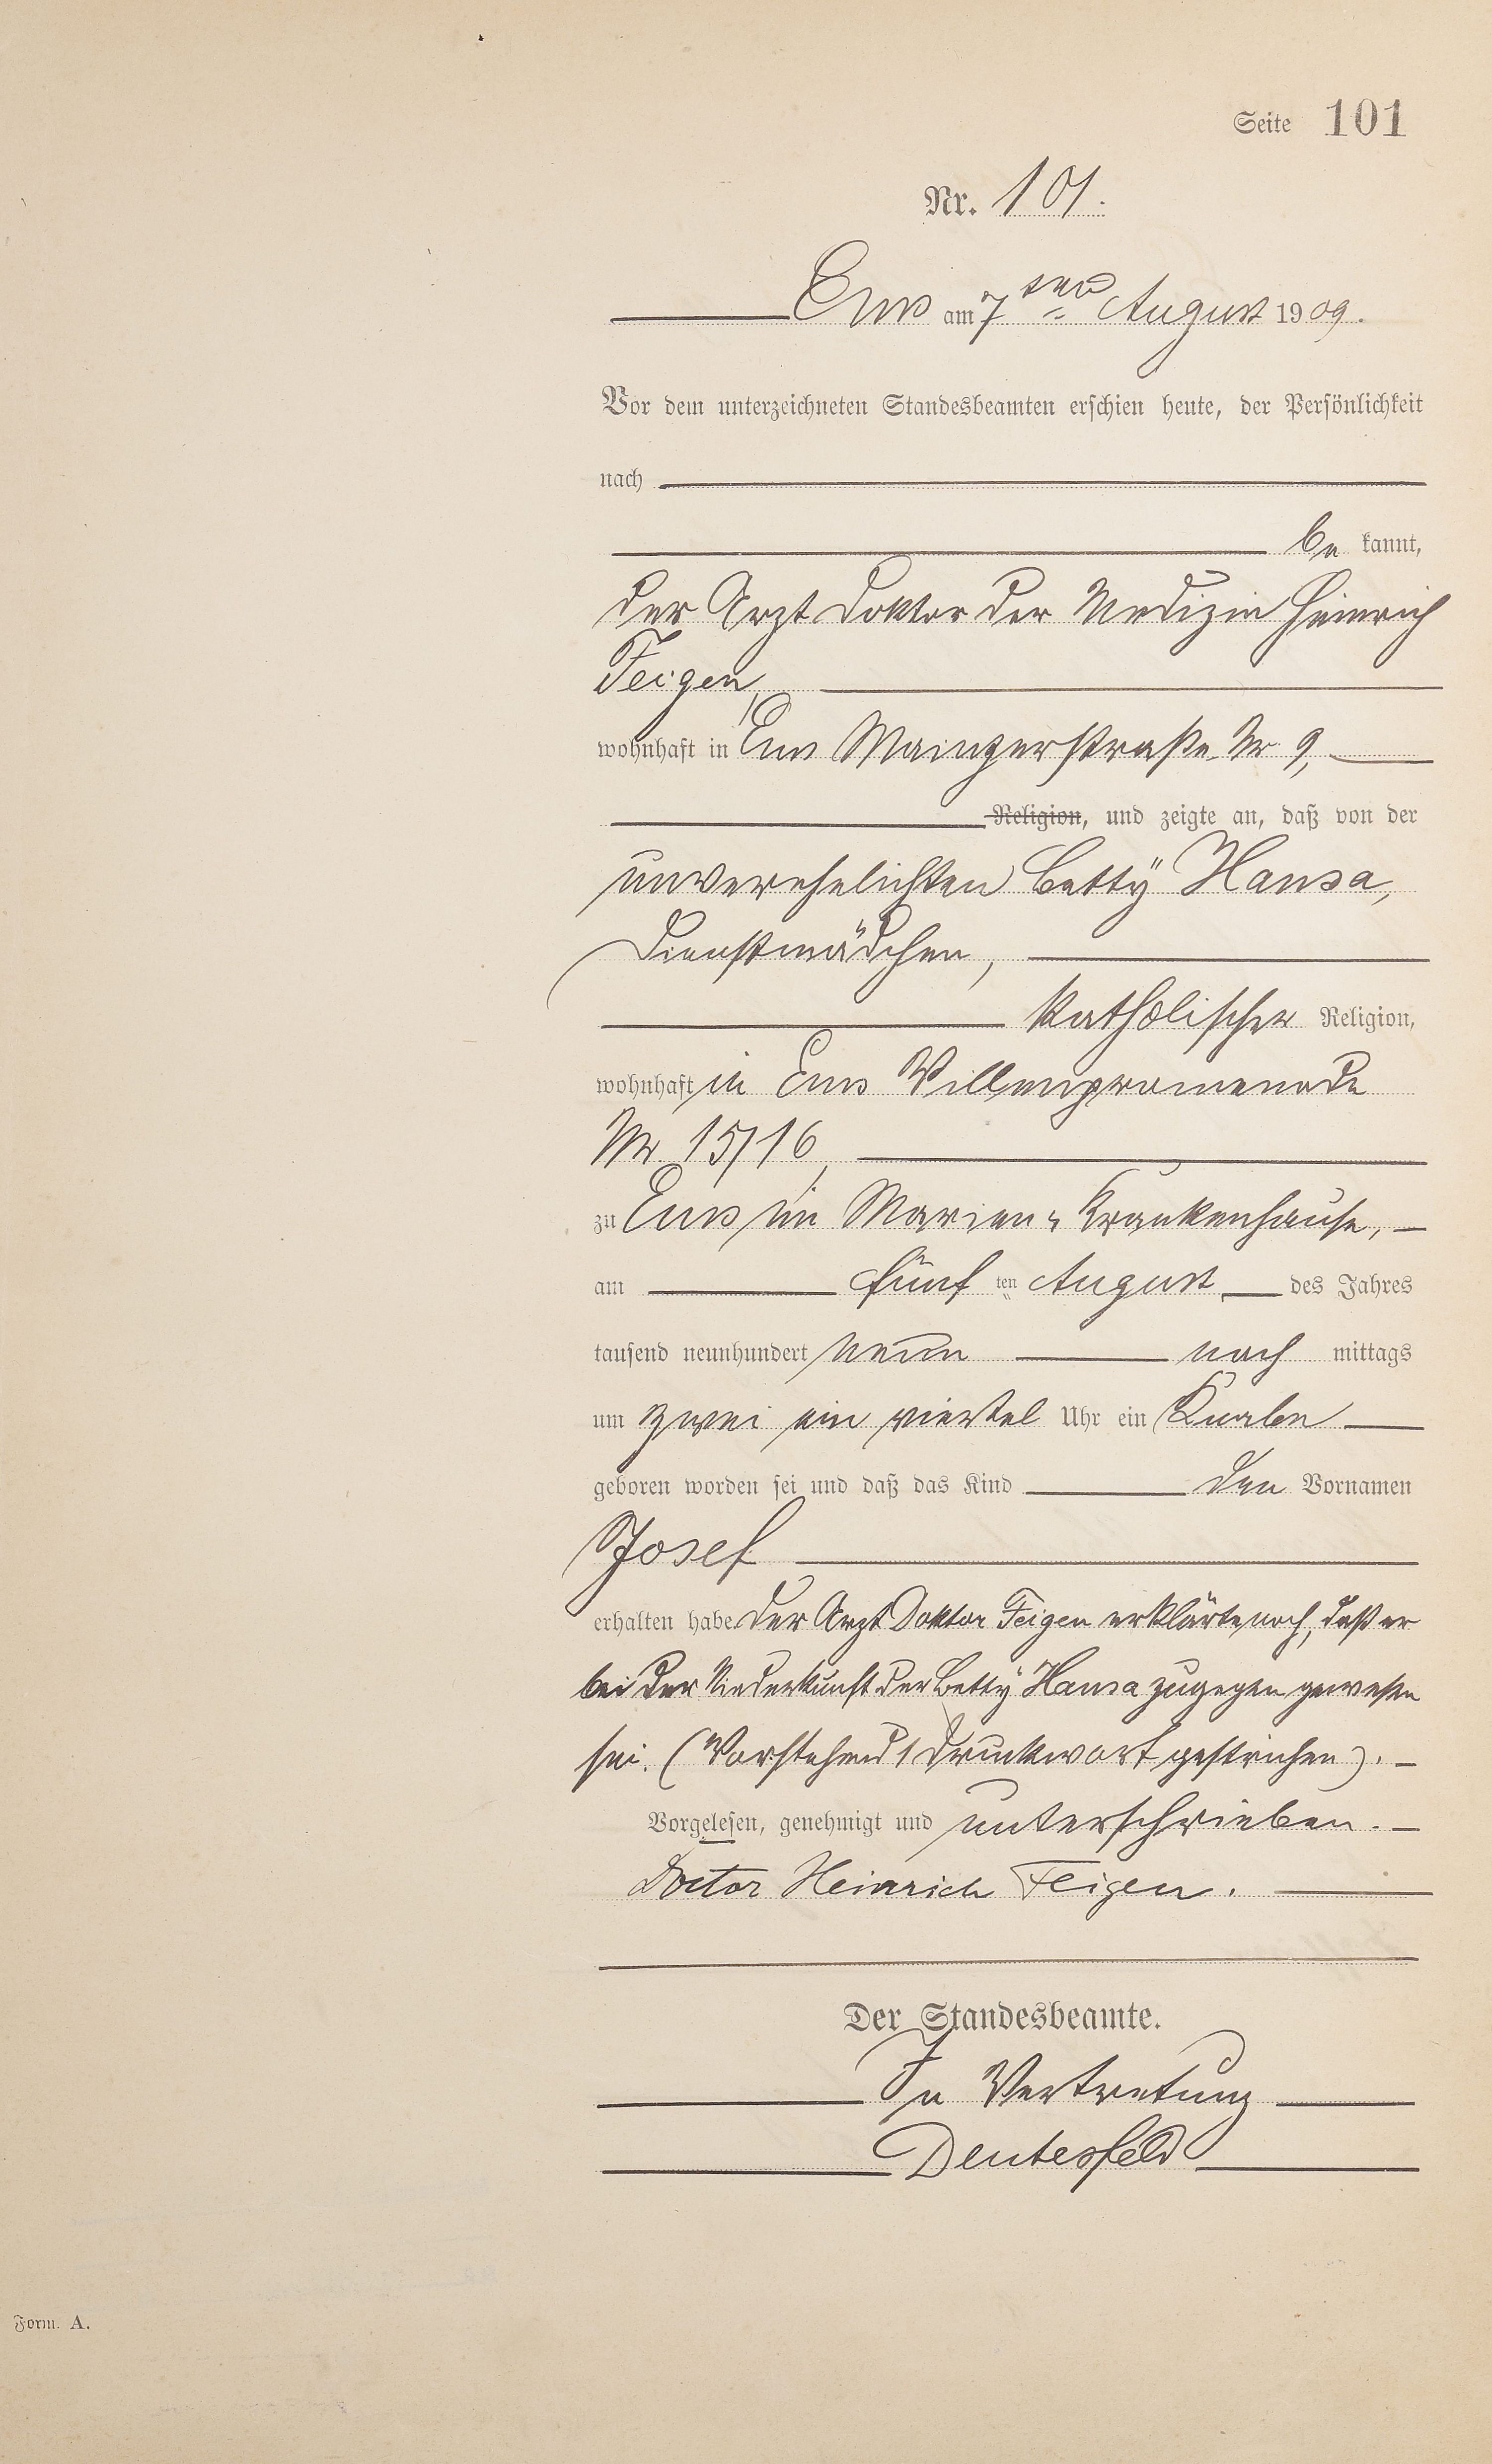 Seite 101
Nr. 101.
Ems am 7ten August 1909.
Vor dem unterzeichneten Standesbeamten erschien heute, der Persönlichkeit
nach
be kannt,
der Arzt Doktor der Medizin Heinrich
Feigen,
wohnhaft in Ems Mainzerstraße Nr 9,
Religion, und zeigte an, daß von der
unverehelichten Betty Hansa,
Dienstmädchen,
katholischer Religion,
wohnhaft in Ems Villenpromenade
Nr. 15/16,
zu Ems im Marien-Krankenhause,
am fünf ten August des Jahres
tausend neunhundert neun nach mittags
um zwei ein viertel Uhr ein Knabe
geboren worden sei und daß das Kind den Vornamen
Josef
erhalten habe. Der Arzt Doktor Feigen erklärte noch, daß er
bei der Niederkunft der Betty Hansa zugegen gewesen
sei. (Vorstehend 1 Druckwort gestrichen).
Vorgelesen, genehmigt und unterschrieben.
Doctor Heinrich Feigen.
Der Standesbeamte.
In Vertretung
Deutesfeld
Form. A.